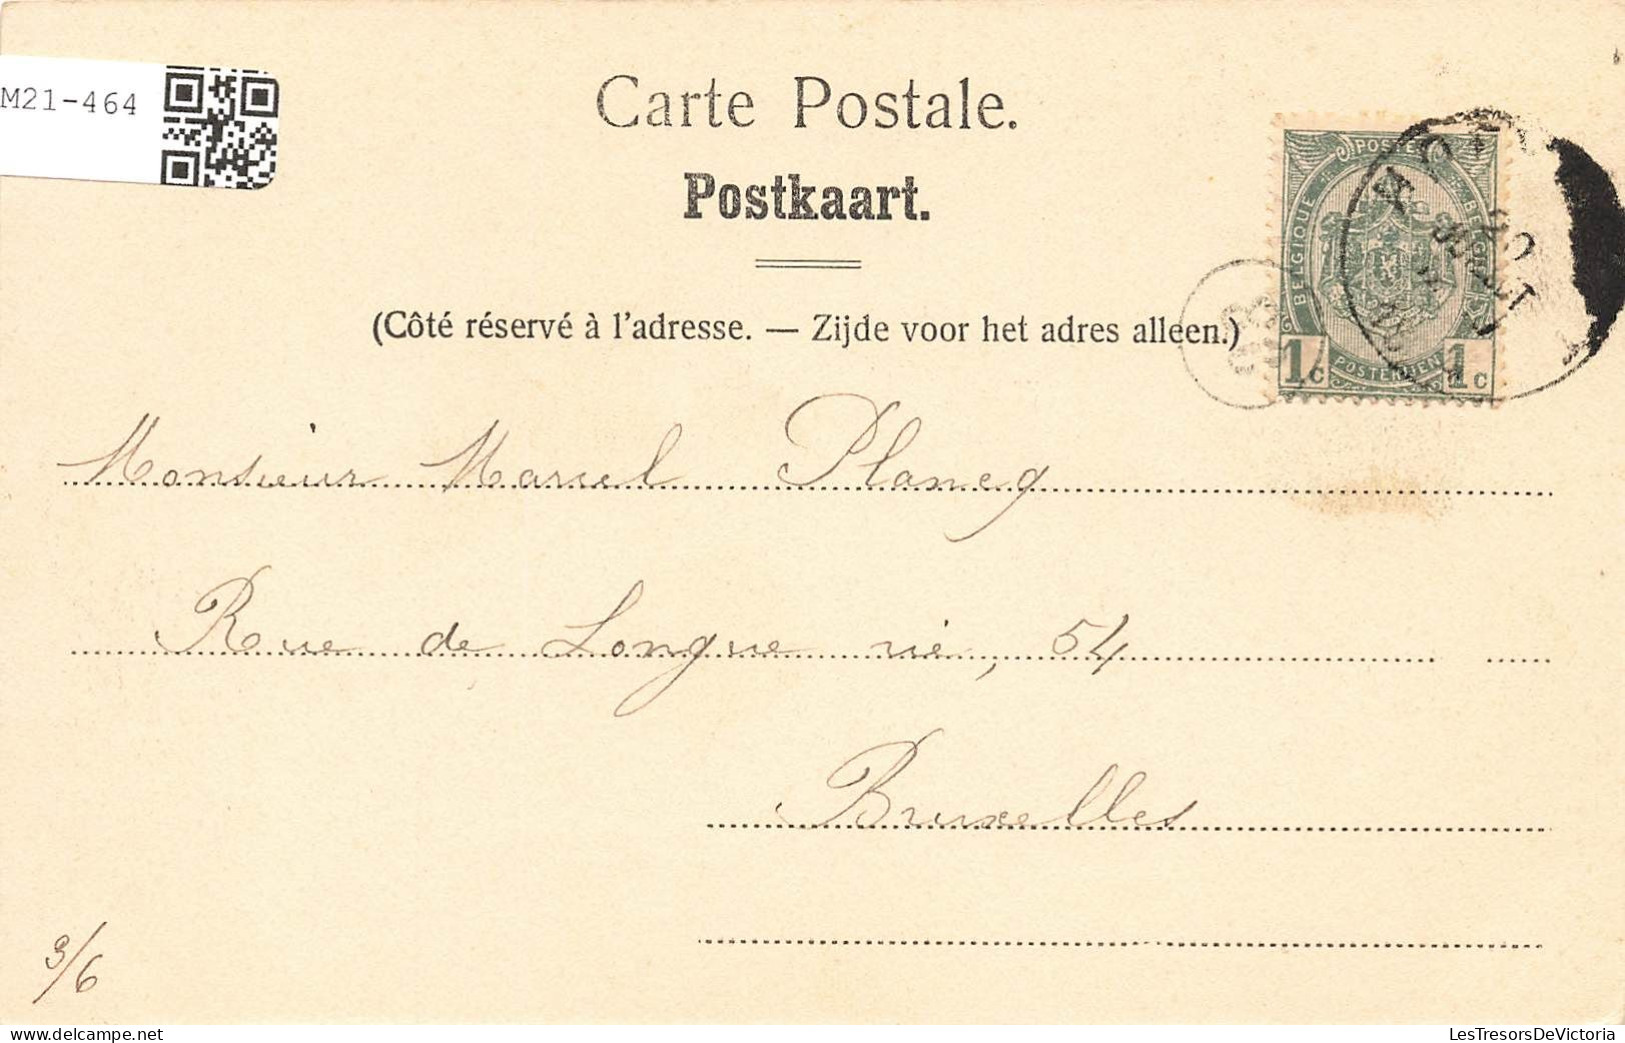 M21-464
Carte Postale.
Postkaart.
(Côté réservé à l'adresse. — Zijde voor het adres alleen.)
BELGIQUE POSTES BELGIË
1c POSTERIJEN 1c
Monsieur Marcel Planeg
Rue de Longue vie, 54
Bruxelles
3/6
LesTresorsDeVictoria